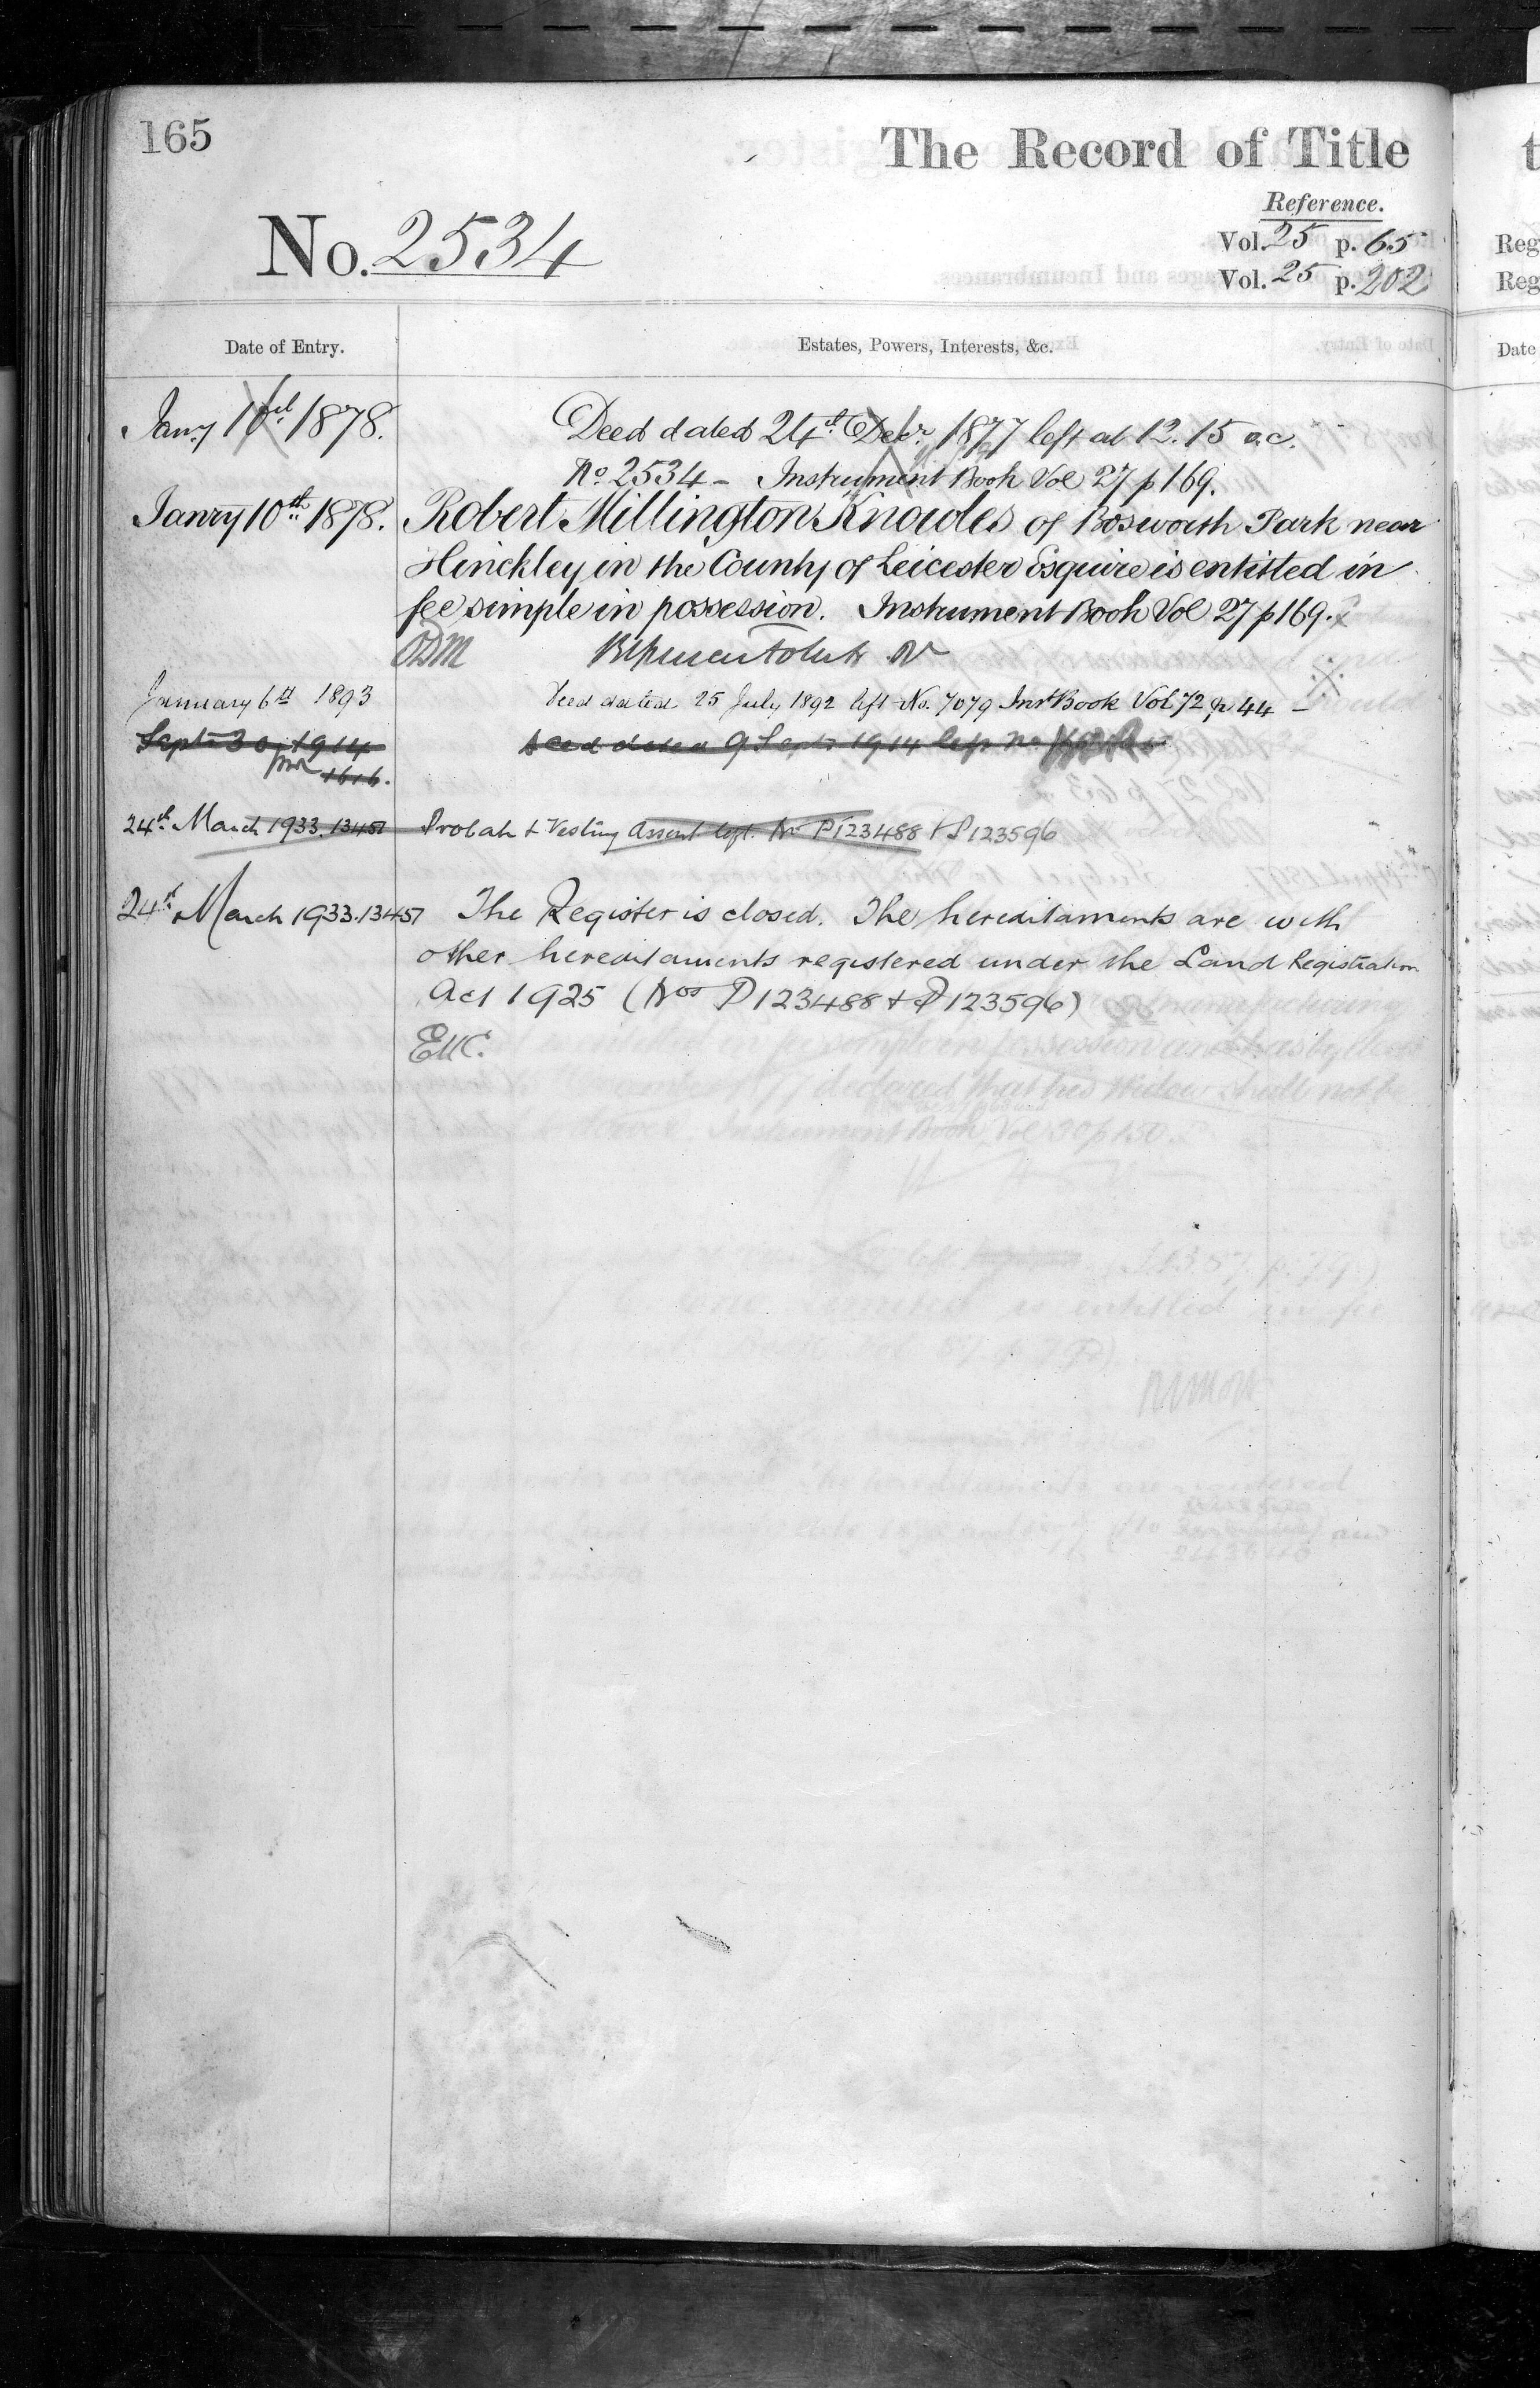 165
The Record of Title
Reference.
No. 2534
Vol. 25 p. 65
Vol. 25 p. 202
Date of Entry.
Estates, Powers, Interests, &c.
Jany 10th 1878.
Deed dated 24th Decr. 1877 left at 12.15 o.c.
No 2534 - Instrument Book Vol 27 p 169.
Janry 10th 1878. Robert Millington Knowles of Bosworth Park near
Hinckley in the County of Leicester Esquire is entitled in
fee simple in possession. Instrument Book Vol 27 p 169.
January 6th 1893 Deed dated 25 July 1892 left No. 7079 Inst Book Vol 72 p 44 -
Septr 30 1914 Deed dated 9 Septr 1914 left No
1616.
24th March 1933. 13457 Probate & Vesting Assent left. No P123488 & P123596
24th March 1933. 13457 The Register is closed. The hereditaments are with
other hereditaments registered under the Land Registration
Act 1925 (Nos P123488 & P123596)
t
Reg
Reg
Date